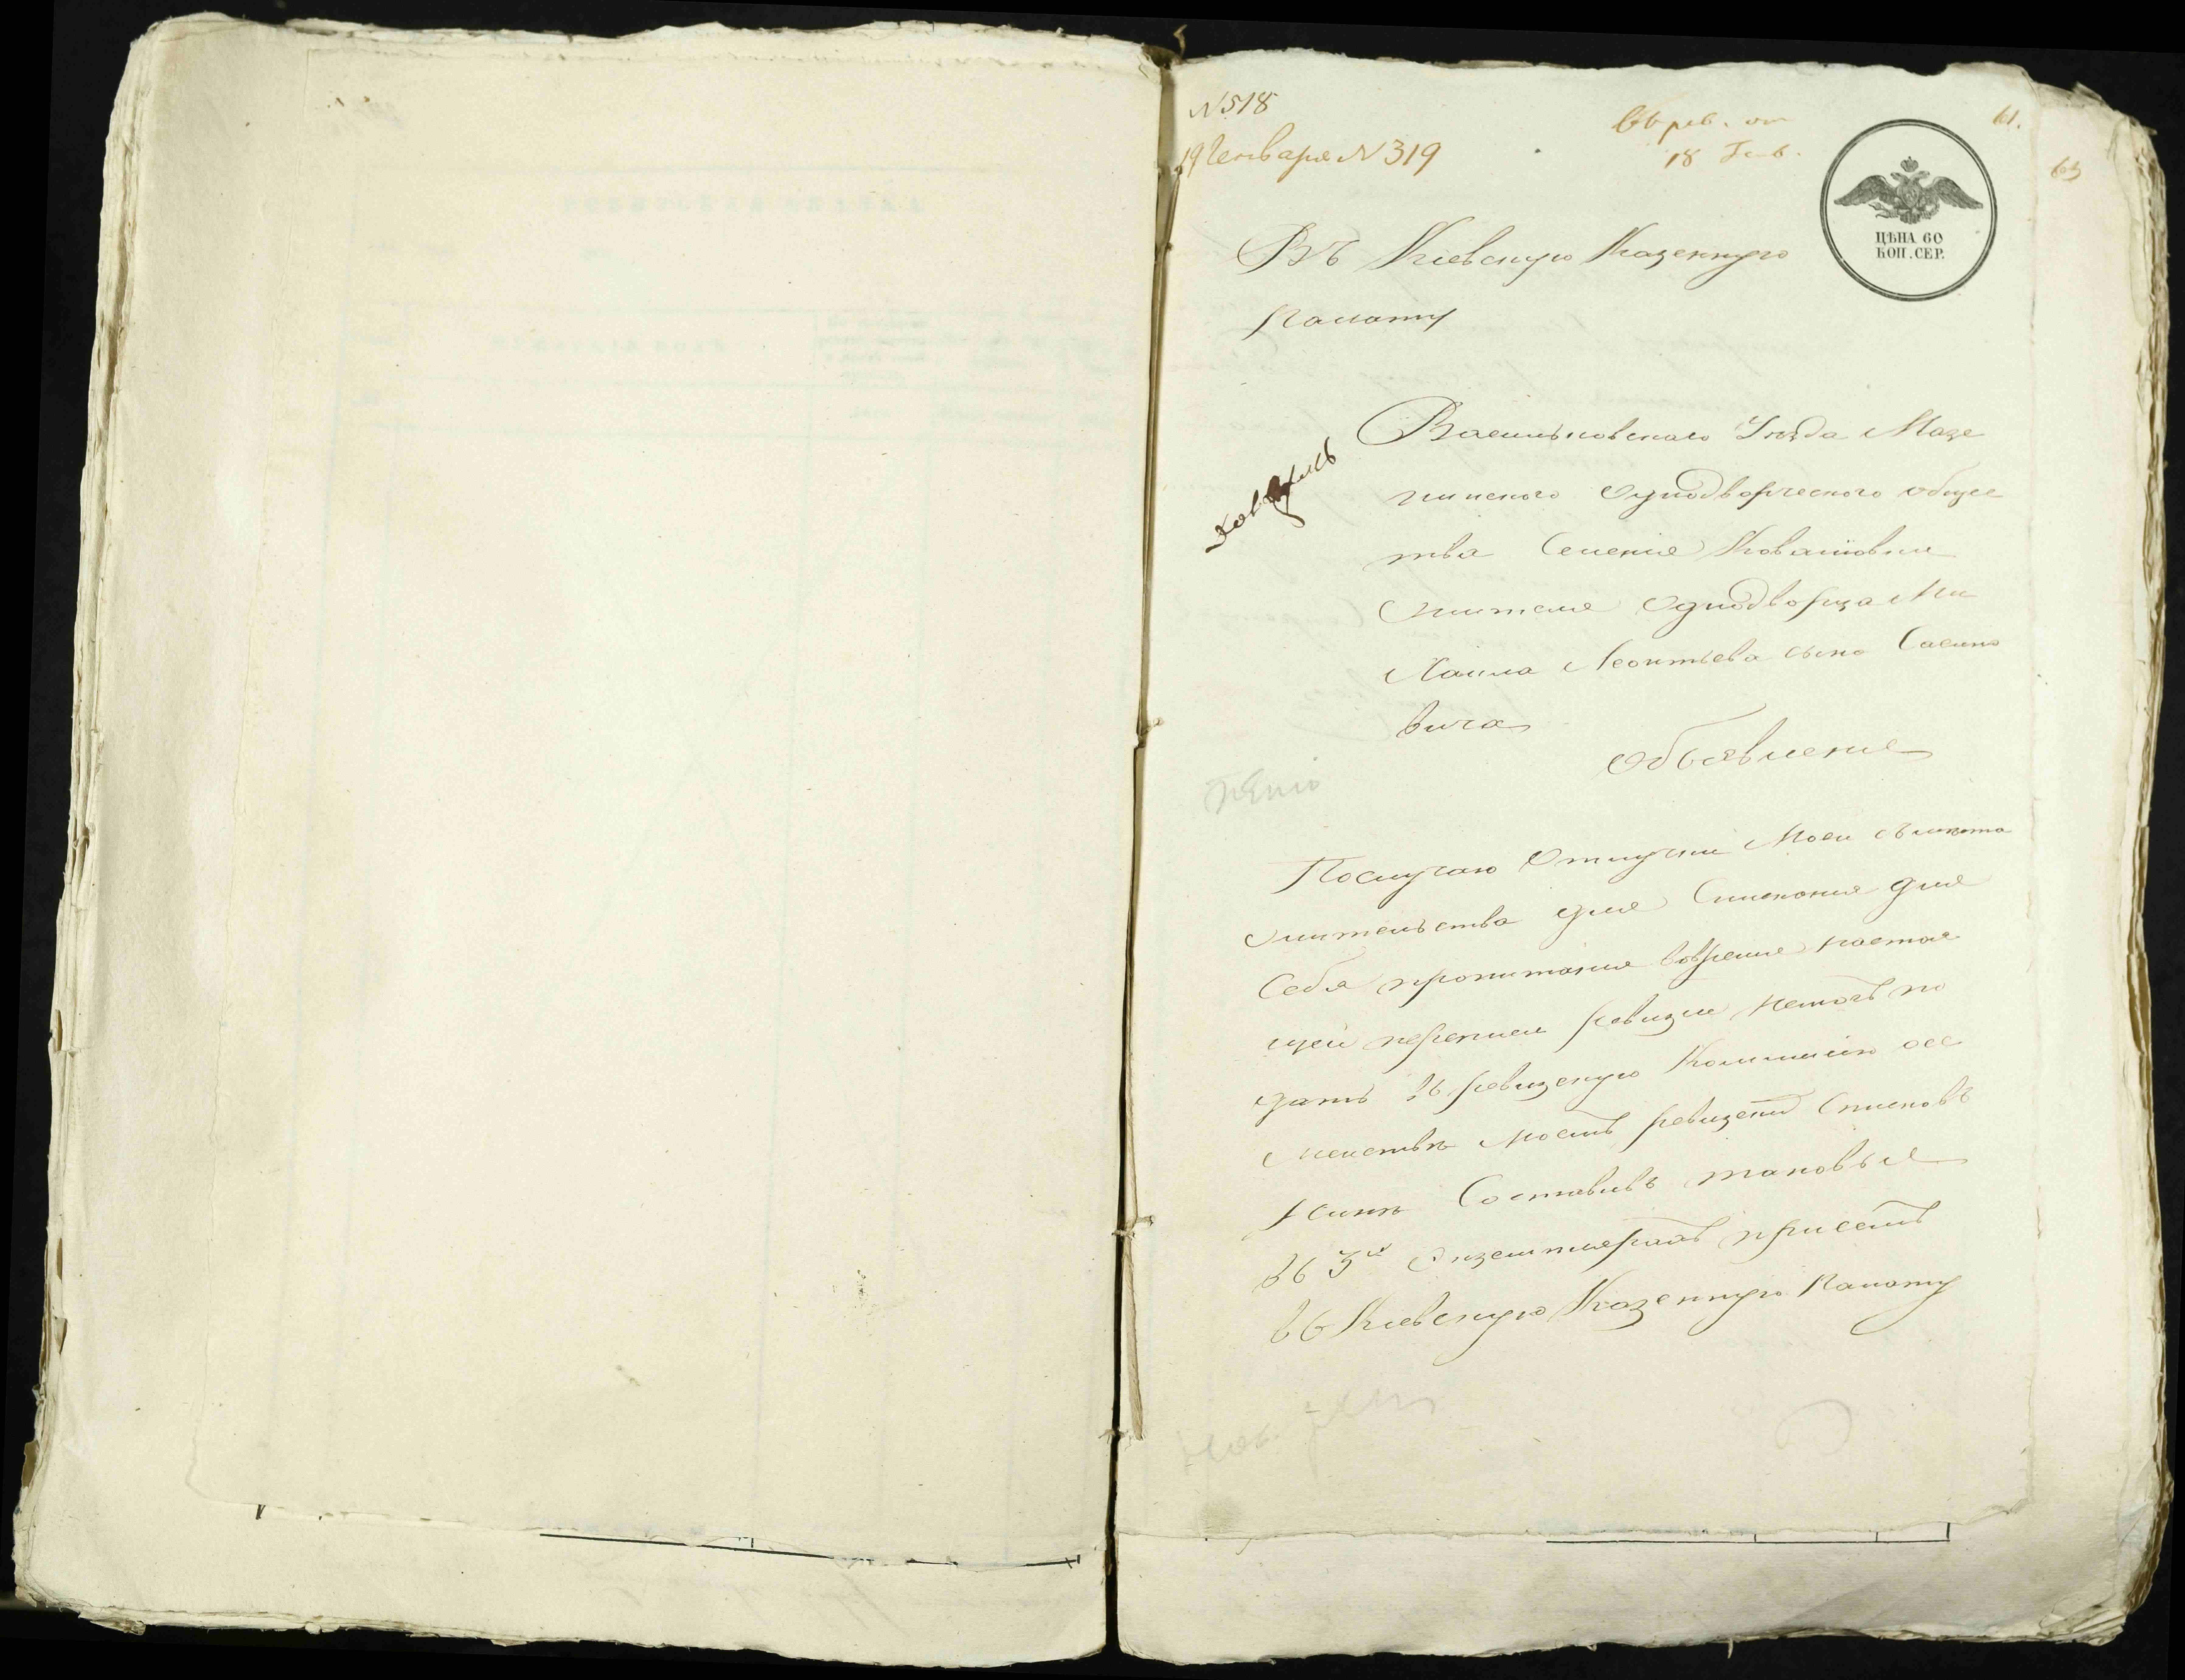 N 518
19 Генваря N 319
61.
63
18 Генв.
ЦѢНА 60
КОП. СЕР.
Въ Кіевскую Казенную
Палату
Васильковскаго Уѣзда Мазе
пинского Однодворческого общес
тва Селенія Ковалювки
жителя Однодворца Ми
хаила Леонтьева сына Сасино
вича
Объявление
Послучаю Отлучки Моей съ место
жительства для Снискания для
Себя пропитания вовремя настоя
щей переписи ревизии немогъ по
дать въ ревизскую Коммисию осе
мействе моемъ ревизскихъ Списковъ
Ныне Составивъ таковые
въ 3х Экземплярахъ присемъ
въ Киевскую Казенную Палату